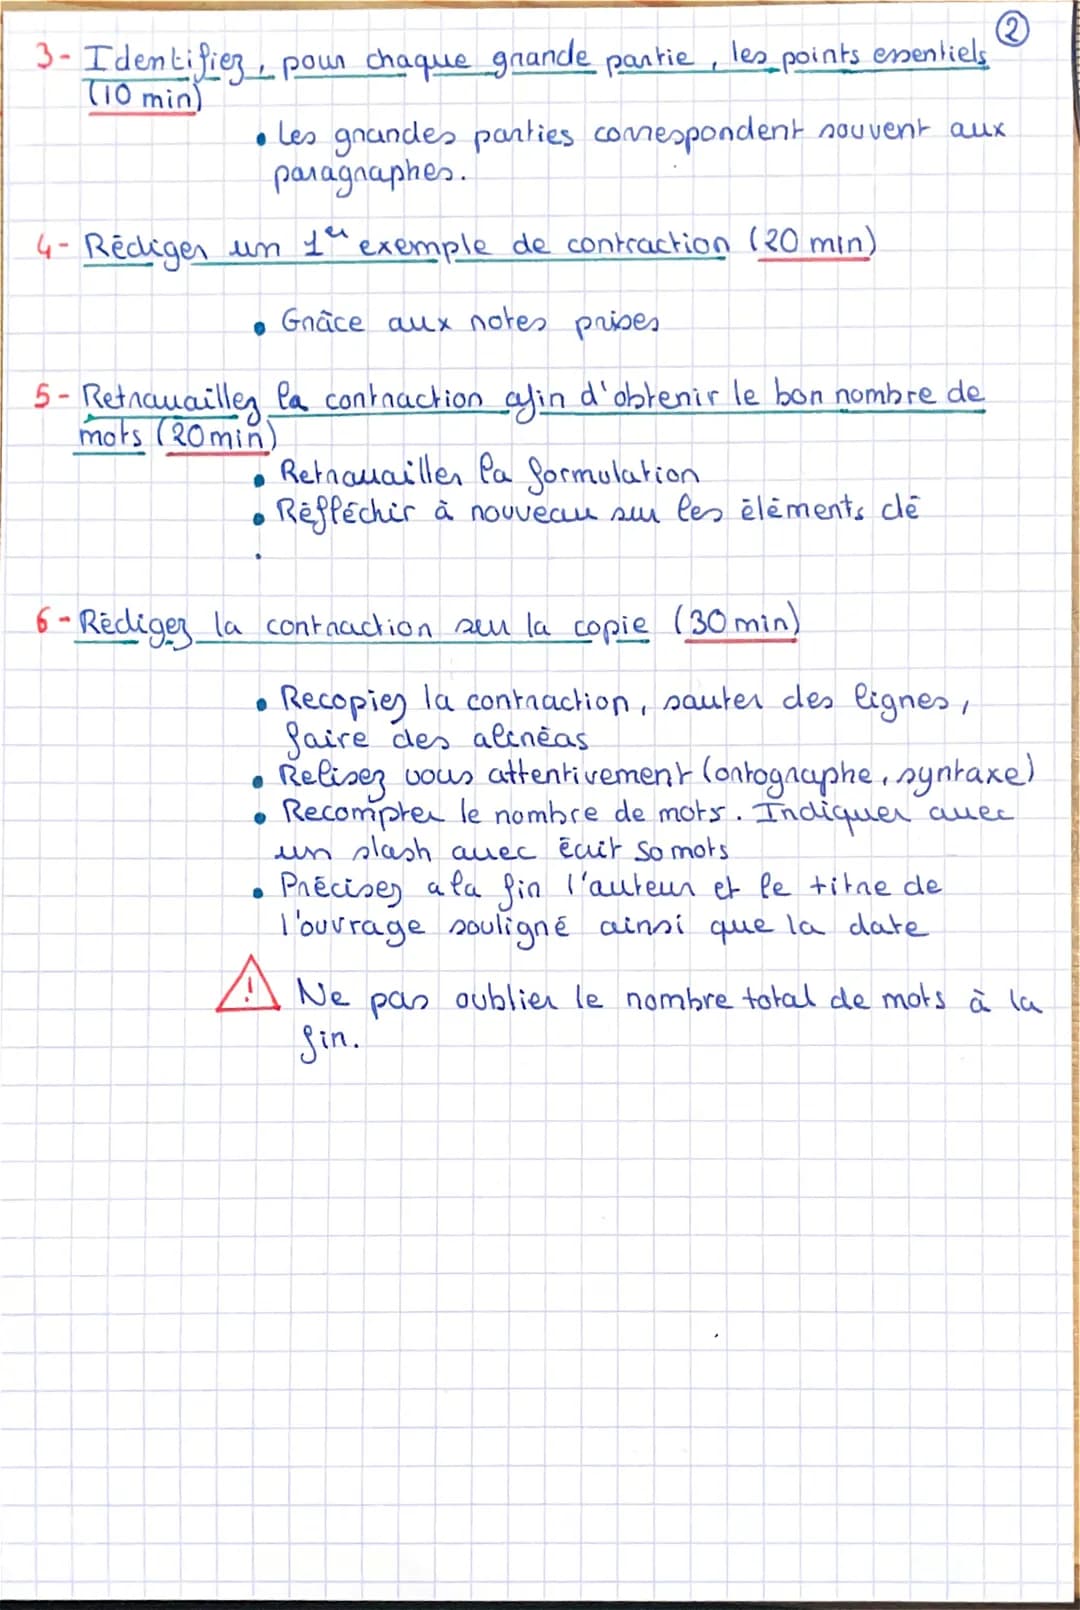 ②
3- Identifiez, pour chaque grande partie, les points essentiels
(10 min)
• Les grandes parties correspondent souvent aux
paragraphes.
4- Rédiger un 1er exemple de contraction (20 min)
• Grâce aux notes prises
5- Retravaillez la contraction afin d'obtenir le bon nombre de
mots (20 min)
• Retravailler la formulation
• Réfléchir à nouveau sur les éléments clé
•
6- Rédigez la contraction sur la copie (30 min)
• Recopiez la contraction, sauter des lignes,
faire des alinéas
• Relisez vous attentivement (ortographe, syntaxe)
• Recompter le nombre de mots. Indiquer avec
un slash avec écrit 50 mots
• Précisez a la fin l'auteur et le titre de
l'ouvrage souligné ainsi que la date
! Ne pas oublier le nombre total de mots à la
fin.